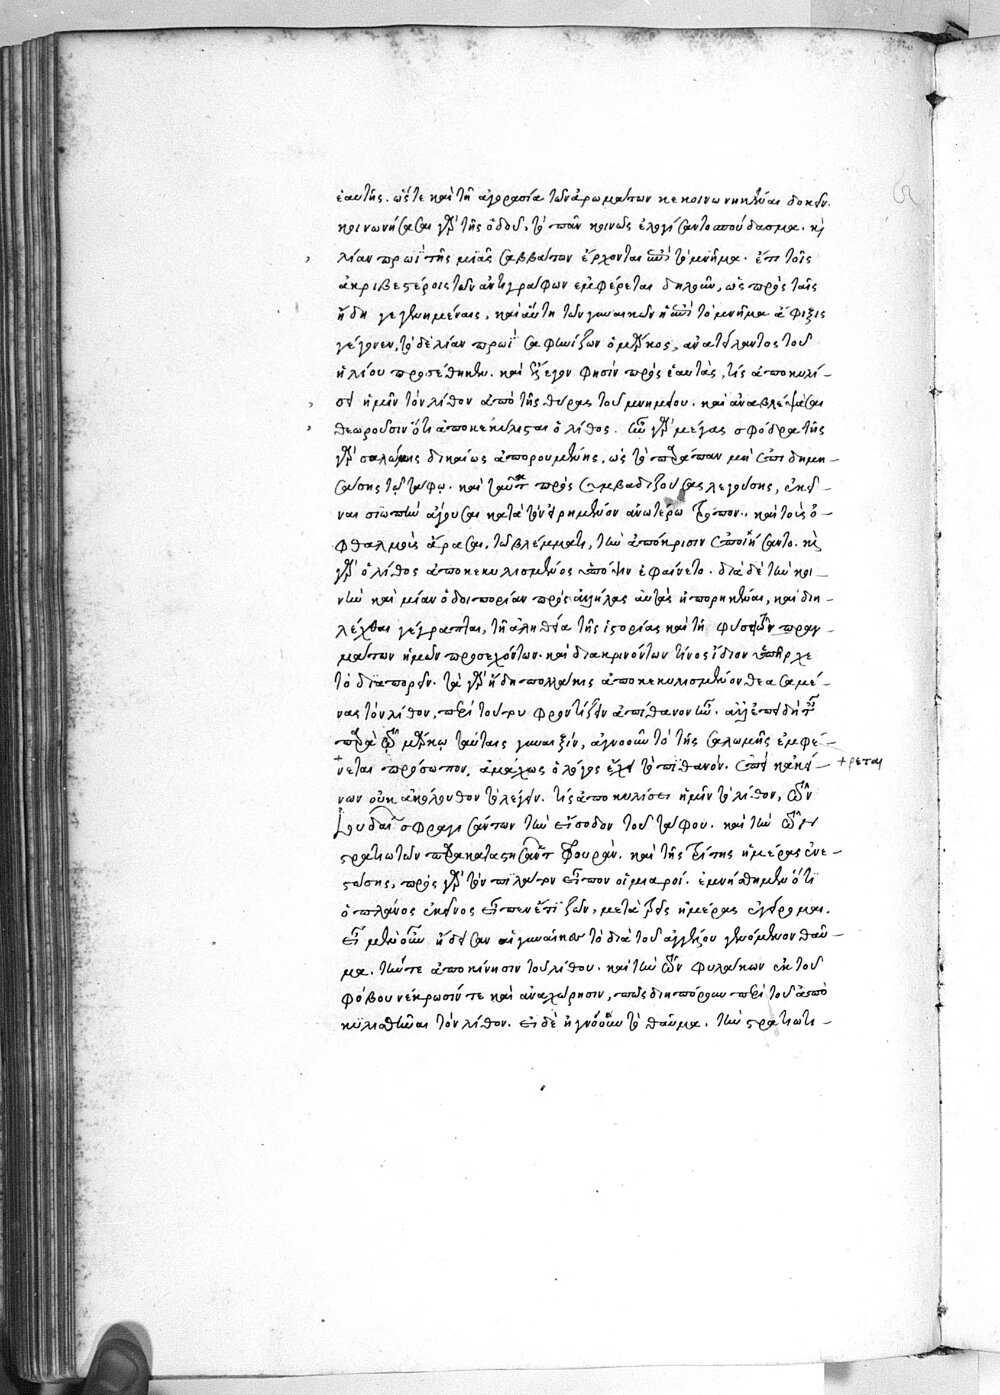 ἑαυτῆς. ὥστε καὶ τῇ ἀγορασία τῶν ἀρωμάτων κεκοινωνηκέναι δοκεῖν.
κοινωνήσασαι γὰρ τῆς ὁδοῦ, τὸ πᾶν κοινῶς ἐλογίσαντο σπούδασμα. κ
λίαν πρωῒ τῆς μιᾶς σαββάτων ἔρχονται ἐπὶ τὸ μνῆμα. ἐπὶ τοῖς
ἀκριβεστέροις τῶν ἀντιγράφων ἐμφέρεται δηλοῦν, ὡς πρὸς ταῖς
ἤδη γεγενημέναις, καὶ αὕτη τῶν γυναικῶν ἡ ἐπὶ τὸ μνῆμα ἄφιξις
γέγονεν, τὸ δὲ λίαν πρωῒ σαφηνίζων ὁ μάρκος, ἀνατείλαντος τοῦ
ἡλίου προσέθηκεν. καὶ ἔλεγον φησὶν πρὸς ἑαυτὰς, τίς ἀποκυλί-
σει ἡμῖν τὸν λίθον ἀπὸ τῆς θύρας τοῦ μνημείου. καὶ ἀναβλέψασαι
θεωροῦσιν ὅτι ἀποκεκύλισται ὁ λίθος. ἦν γὰρ μέγας σφόδρα τῆς
γὰρ σαλώμης δικαίως ἀπορουμένης, ὡς τὸ παράπαν μὴ ἐπιδημη-
σάσης τῷ τάφῳ. καὶ ταῦτα πρὸς συμβαδιζούσας λεγούσης, ἐκεῖ-
ναι σιωπὴν ἄγουσαι κατὰ τὸν εἰρημένον ἀνωτέρω τρόπον. καὶ τοὺς ὀ-
φθαλμοὺς ἄρασαι, τῷ βλέμματι, τὴν ἀπόκρισιν ἐποιήσαντο. κ
γὰρ ὁ λίθος ἀποκεκυλισμένος ὑπόψιν ἐφαίνετο. διὰ δὲ τὴν κοι-
νὴν καὶ μίαν ὁδοιπορίαν πρὸς ἀλλήλας αὐτὰς ἠπορηκέναι, καὶ διη-
λέχθαι γέγραπται, τῇ ἀληθεία τῆς ἱστορίας καὶ τῇ φύσει τῶν πραγ-
μάτων ἡμῶν προσεχόντων. καὶ διακρινόντων τίνος ἴδιον ὑπῆρχε
τὸ διαπορεῖν. τὰς γὰρ ἤδη πολλάκις ἀποκεκυλισμένον θεασαμέ-
νας τὸν λίθον, περὶ τούτου φροντίζειν ἀπίθανον ἦν. ἀλλ' ἐπειδὴ
παρὰ τῷ μάρκῳ ταύταις γυναιξὶν, ἀγνοοῦν τὸ τῆς σαλώμης ἐμφέ-
νεται πρόσωπον, ἀμάχως ὁ λόγος ἔχει τὸ πιθανόν. ἐπεὶ κἀκεῖ- + ρεται
νων οὐκ ἀκόλουθον τὸ λέγειν. τίς ἀποκυλίσει ἡμῖν τὸ λίθον, τῶν
Ἰουδαί σφραγισάντων τὴν εἴσοδον τοῦ τάφου. καὶ τὴν τῶν
στρατιωτῶν παρακαταστησάντων φρουράν. καὶ τῆς τρίτης ἡμέρας ἐνε-
στώσης, πρὸς γὰρ τὸν πιλάτον εἶπον οἱ μιαροί. ἐμνήσθημεν ὅτι
ὁ πλάνος ἐκεῖνος εἶπεν ἔτι ζῶν, μετὰ τρεῖς ἡμέρας ἐγείρομαι.
εἰ μὲν οὖν ἤδεισαν αἱ γυναῖκες τὸ διὰ τοῦ ἀγγέλου γενόμενον θαῦ-
μα. τήν τε ἀποκίνησιν τοῦ λίθου. καὶ τὴν τῶν φυλάκων ἐκ τοῦ
φόβου νέκρωσίν τε καὶ ἀναχώρησιν, πῶς διηπόρουν περὶ τοῦ ἀπο
κυλισθῆναι τὸν λίθον. εἰ δὲ ἠγνόουν τὸ θαῦμα. τὴν στρατιωτι-